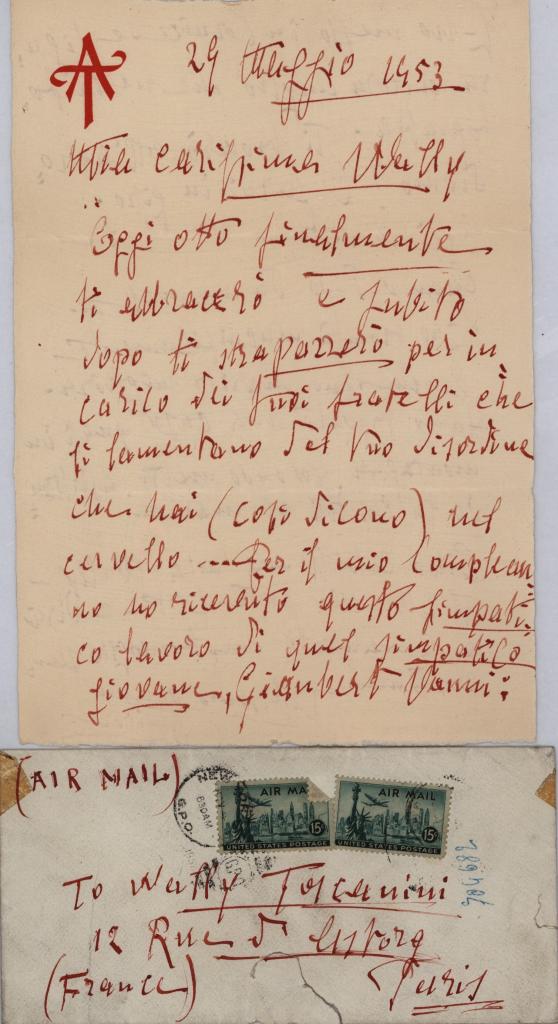 AT
29 Maggio 1953
Mia carissima Wally
Oggi otto finalmente
ti abbraccerò e subito
dopo ti strapazzerò per in
carico dei tuoi fratelli che
si lamentano del tuo disordine
che hai (così dicono) nel
cervello --- Per il mio complean
no ho ricevuto questo simpati-
co lavoro di quel simpatico
giovane, Gianbert Vanni:
(AIR MAIL)
NEW
G.P.O.
630AM
AIR MA
15¢
UNITED STATES POSTAGE
AIR MAIL
15¢
UNITED STATES POSTAGE
To Wally Toscanini
12 Rue d'Astorg
(France) Paris